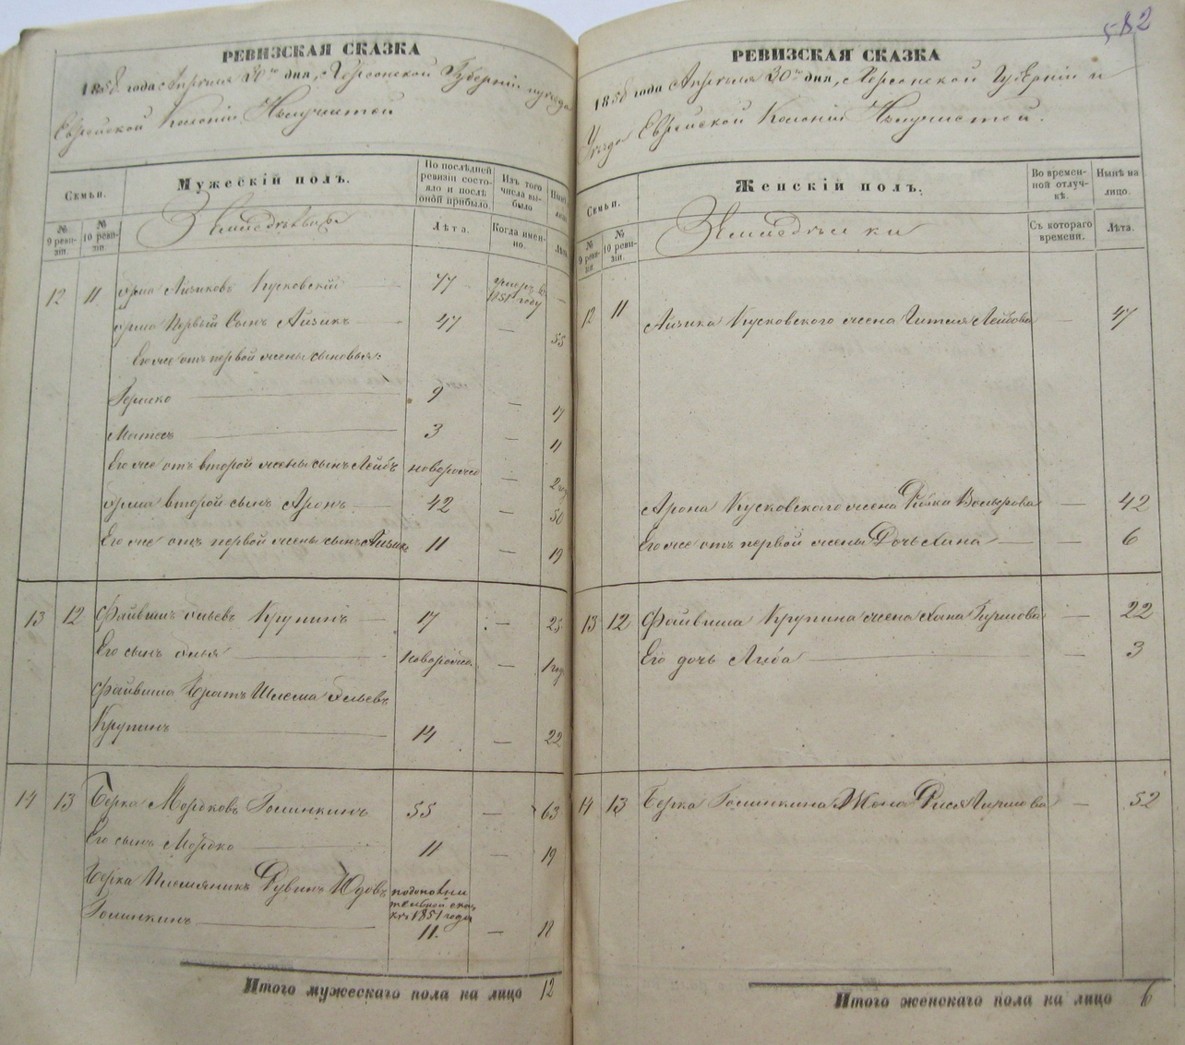 РЕВИЗСКАЯ СКАЗКА
1858 года Апреля 30го дня, Херсонской Губернии и уезда
Еврейской Колонии
Семьи.
Мужескій полъ.
По послѣдней ревизіи состояло и послѣ оной прибыло.
Изъ того числа выбыло
№ 9 ревизіи.
№ 10 ревизіи.
Земледѣльцы
Лѣта.
Когда именно.
Лѣта
12 11 Айзиковъ Кусковскій 77 умеръ въ 1851 году —
первый сынъ Айзикъ 47 — 55
Его же отъ первой жены сыновья:
Гершко 9 — 17
Мотесъ 3 — 11
Его же отъ второй жены сынъ Лейбъ новорожд
второй сынъ Аронъ 42 — 50
Его же отъ первой жены сынъ Айзикъ 11 — 19
13 12 Файвишъ Крупинъ 17 — 25
Его сынъ новорожд. —
Файвиша братъ Шлема
Крупинъ 14 — 22
14 13 Берка Мордковъ 55 — 63
Его сынъ Мордко 11 — 19
Берка племяникъ Рувинъ Юдовъ
по дополнительной сказкѣ 1851 года
11. — 18
Итого мужескаго пола на лицо 12
582
РЕВИЗСКАЯ СКАЗКА
1858 года Апреля 30го дня, Херсонской Губерніи и
Уезда Еврейской Колоніи
Семьи.
Женскій полъ.
Во временной отлучкѣ.
Нынѣ на лицо.
№ 9 ревизіи
№ 10 ревизіи.
Земледѣлки
Съ котораго времени.
Лѣта.
12 11 Айзика Кусковского жена Гитля Лейбова — 47
Арона Кусковского жена Рейза — 42
Его же отъ первой жены дочь Хина — 6
13 12 Файвиша Крупина жена — 22
Его дочь Либа — 3
14 13 Берка жена — 52
Итого женскаго пола на лицо 6